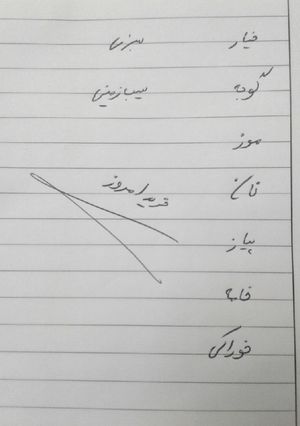 خیار سبزی
گوجه سیب‌زمینی
موز
نان خرید امروز
پیاز
خوراکی